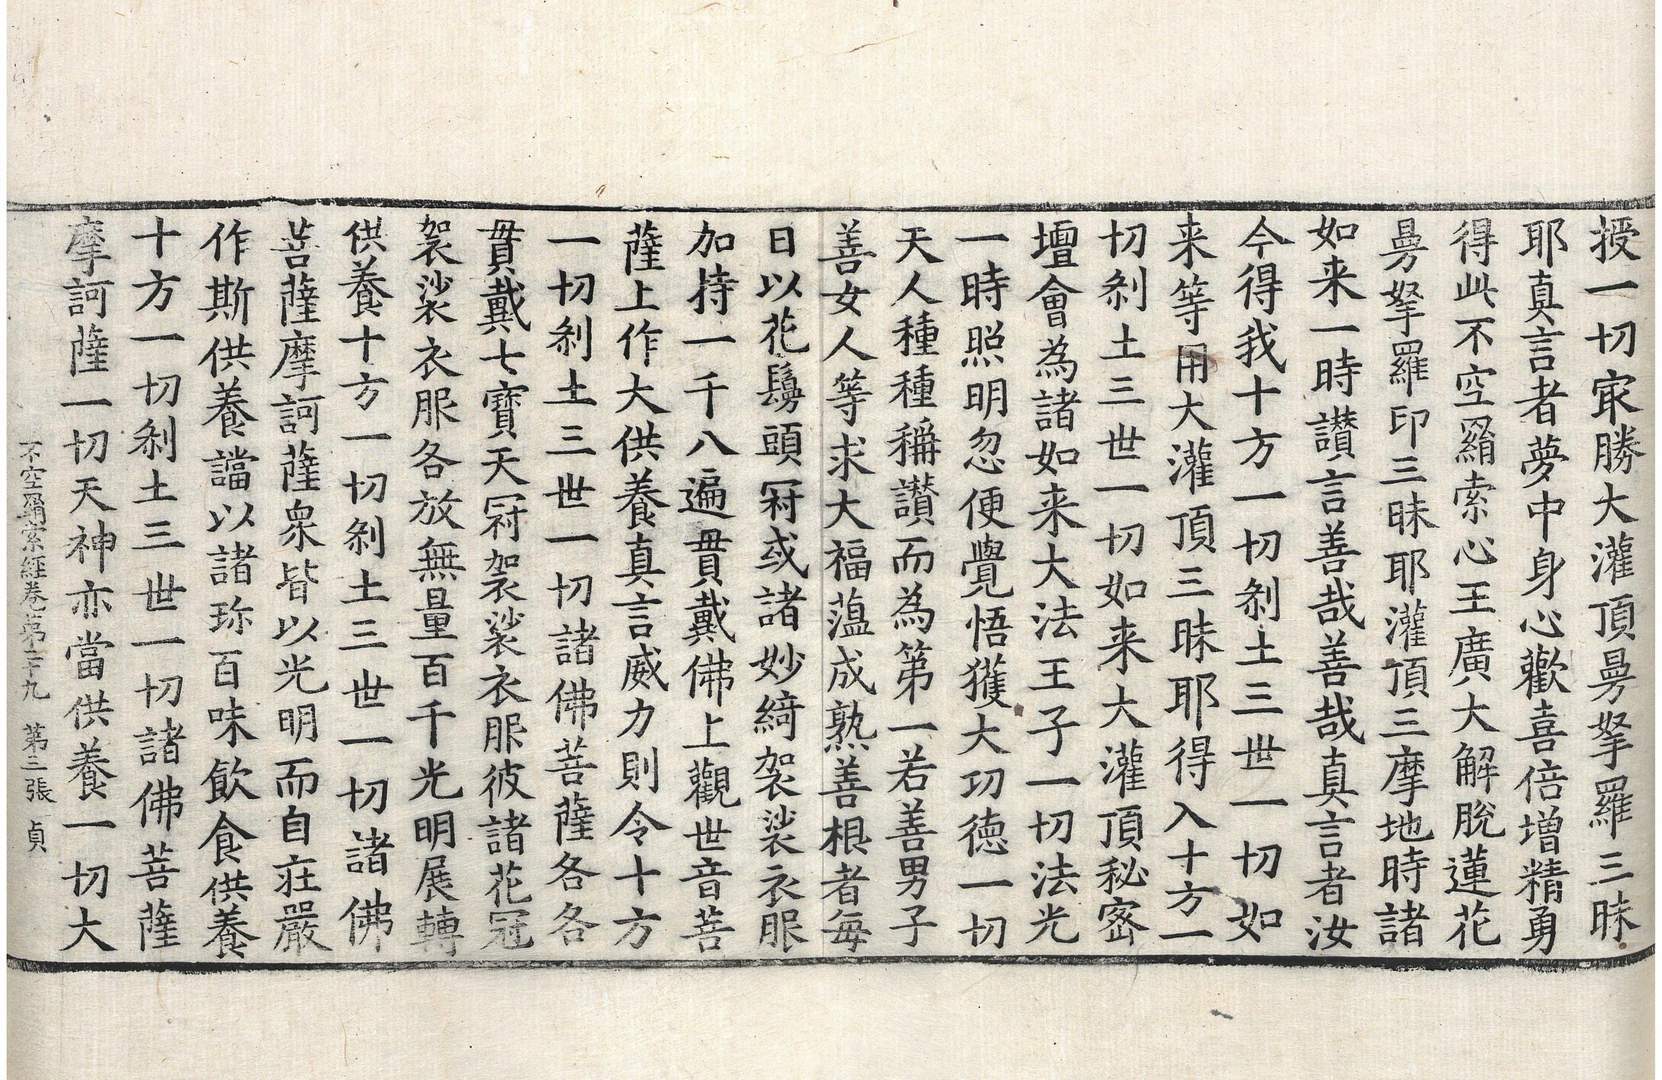 授一切冣勝大灌頂曼拏羅三昧
耶真言者夢中身心歡喜倍增精勇
得此不空羂索心王廣大解脫蓮花
曼拏羅印三昧耶灌頂三摩地時諸
如来一時讃言善哉善哉真言者汝
今得我十方一切剎土三世一切如
来等用大灌頂三昧耶得入十方一
切剎土三世一切如来大灌頂秘密
壇會為諸如来大法王子一切法光
一時照明忽便覺悟獲大功德一切
天人種種稱讃而為第一若善男子
善女人等求大福蕰成熟善根者每
日以花鬘頭冠或諸妙綺袈裟衣服
加持一千八遍貫戴佛上觀世音菩
薩上作大供養真言威力則令十方
一切剎土三世一切諸佛菩薩各各
貫戴七寶天冠袈裟衣服彼諸花冠
袈裟衣服各放無量百千光明展轉
供養十方一切剎土三世一切諸佛
菩薩摩訶薩衆皆以光明而自莊嚴
作斯供養譡以諸珎百味飲食供養
十方一切剎土三世一切諸佛菩薩
摩訶薩一切天神亦當供養一切大
不空羂索經卷第二十九 第三張 貞